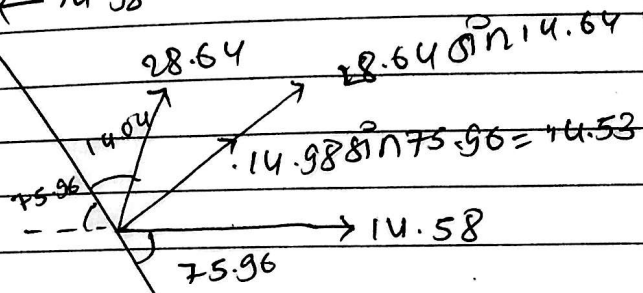 28.64
28.64 sin 14.64
14.04
14.98 sin 75.96 = 14.53
75.96
14.58
75.96